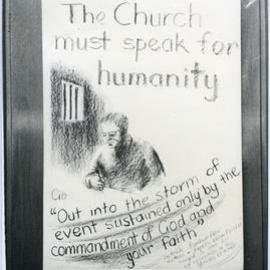 The Church
must speak for
humanity
"Out into the storm of
event sustained only by the
commandment of God and
your faith"